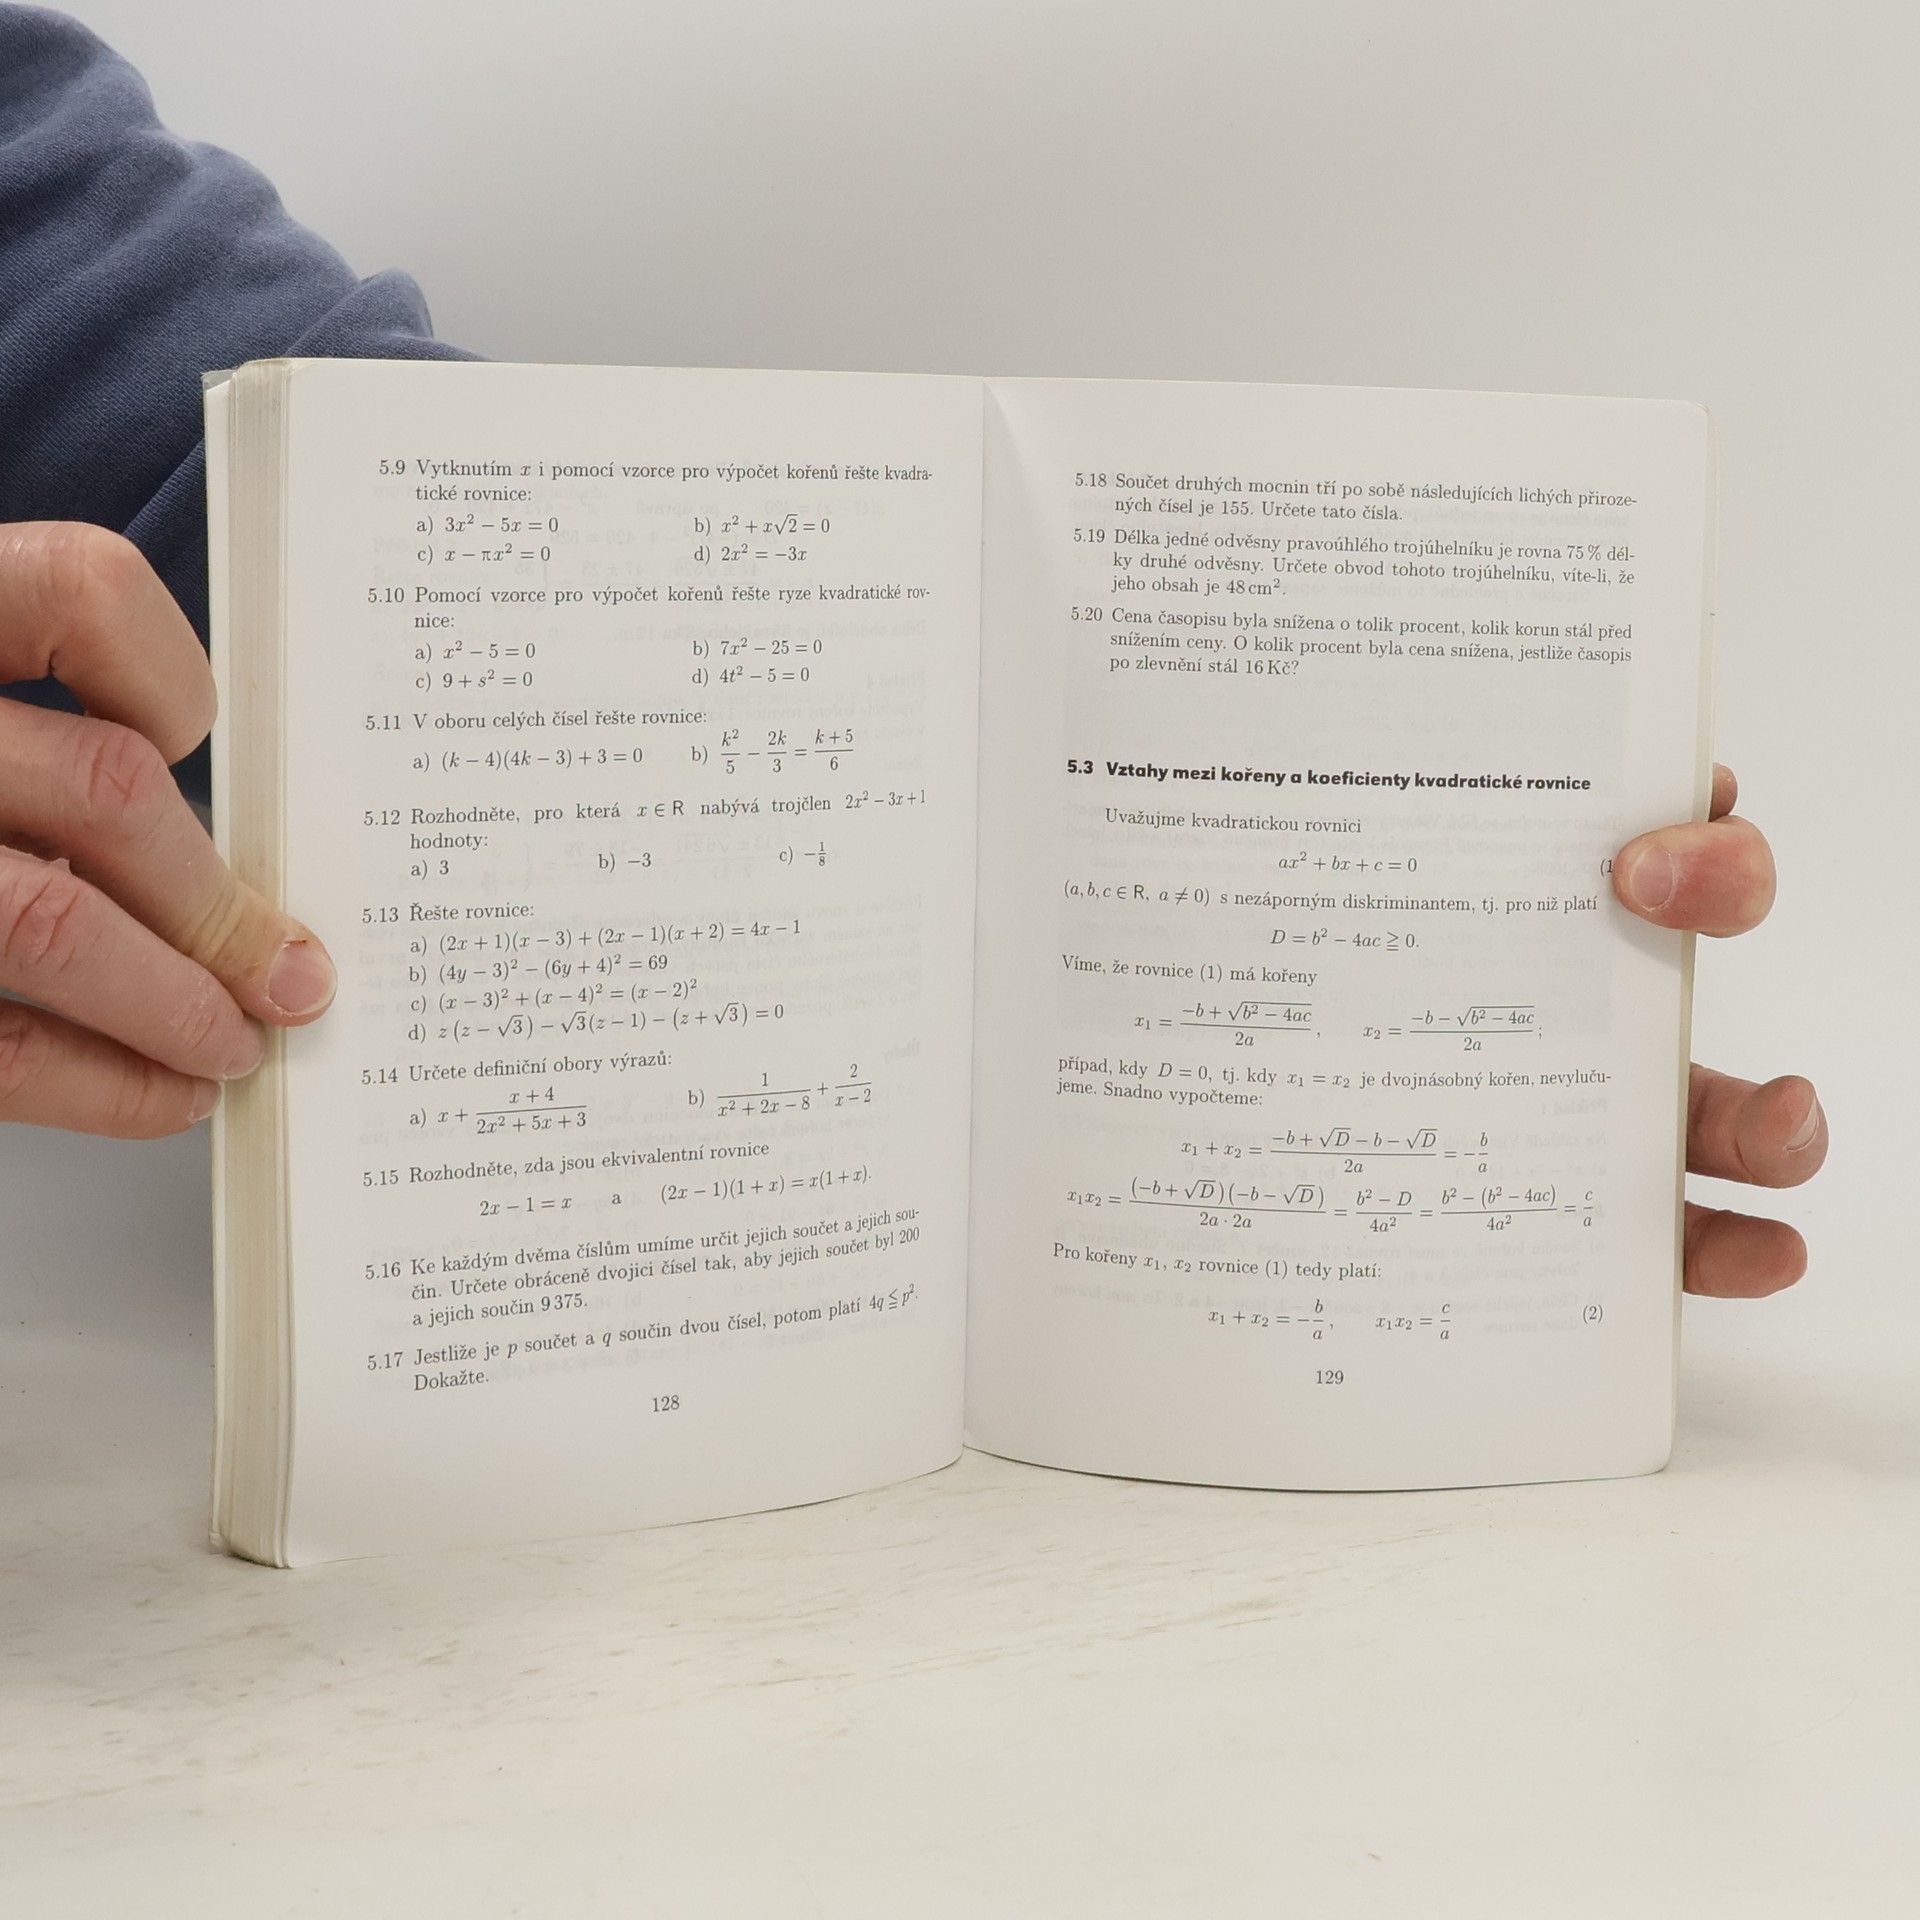 5.9 Vytknutím x i pomocí vzorce pro výpočet kořenů řešte kvadra-
tické rovnice:
a) 3x² − 5x = 0 b) x² + x√2 = 0
c) x − πx² = 0 d) 2x² = −3x
5.10 Pomocí vzorce pro výpočet kořenů řešte ryze kvadratické rov-
nice:
a) x² − 5 = 0 b) 7x² − 25 = 0
c) 9 + s² = 0 d) 4t² − 5 = 0
5.11 V oboru celých čísel řešte rovnice:
a) (k − 4)(4k − 3) + 3 = 0 b) k²/5 − 2k/3 = (k + 5)/6
5.12 Rozhodněte, pro která x ∈ R nabývá trojčlen 2x² − 3x + 1
hodnoty:
a) 3 b) −3 c) −1/8
5.13 Řešte rovnice:
a) (2x + 1)(x − 3) + (2x − 1)(x + 2) = 4x − 1
b) (4y − 3)² − (6y + 4)² = 69
c) (x − 3)² + (x − 4)² = (x − 2)²
d) z(z − √3) − √3(z − 1) − (z + √3) = 0
5.14 Určete definiční obory výrazů:
a) x + (x + 4)/(2x² + 5x + 3) b) 1/(x² + 2x − 8) + 2/(x − 2)
5.15 Rozhodněte, zda jsou ekvivalentní rovnice
2x − 1 = x a (2x − 1)(1 + x) = x(1 + x).
5.16 Ke každým dvěma číslům umíme určit jejich součet a jejich sou-
čin. Určete obráceně dvojici čísel tak, aby jejich součet byl 200
a jejich součin 9 375.
5.17 Jestliže je p součet a q součin dvou čísel, potom platí 4q ≦ p².
Dokažte.
128
5.18 Součet druhých mocnin tří po sobě následujících lichých přiroze-
ných čísel je 155. Určete tato čísla.
5.19 Délka jedné odvěsny pravoúhlého trojúhelníku je rovna 75 % dél-
ky druhé odvěsny. Určete obvod tohoto trojúhelníku, víte-li, že
jeho obsah je 48 cm².
5.20 Cena časopisu byla snížena o tolik procent, kolik korun stál před
snížením ceny. O kolik procent byla cena snížena, jestliže časopis
po zlevnění stál 16 Kč?
5.3 Vztahy mezi kořeny a koeficienty kvadratické rovnice
Uvažujme kvadratickou rovnici
ax² + bx + c = 0 (1
(a, b, c ∈ R, a ≠ 0) s nezáporným diskriminantem, tj. pro niž platí
D = b² − 4ac ≧ 0.
Víme, že rovnice (1) má kořeny
x₁ = (−b + √(b² − 4ac))/2a, x₂ = (−b − √(b² − 4ac))/2a;
případ, kdy D = 0, tj. kdy x₁ = x₂ je dvojnásobný kořen, nevyluču-
jeme. Snadno vypočteme:
x₁ + x₂ = (−b + √D − b − √D)/2a = −b/a
x₁x₂ = (−b + √D)(−b − √D)/(2a · 2a) = (b² − D)/4a² = (b² − (b² − 4ac))/4a² = c/a
Pro kořeny x₁, x₂ rovnice (1) tedy platí:
x₁ + x₂ = −b/a, x₁x₂ = c/a (2)
129